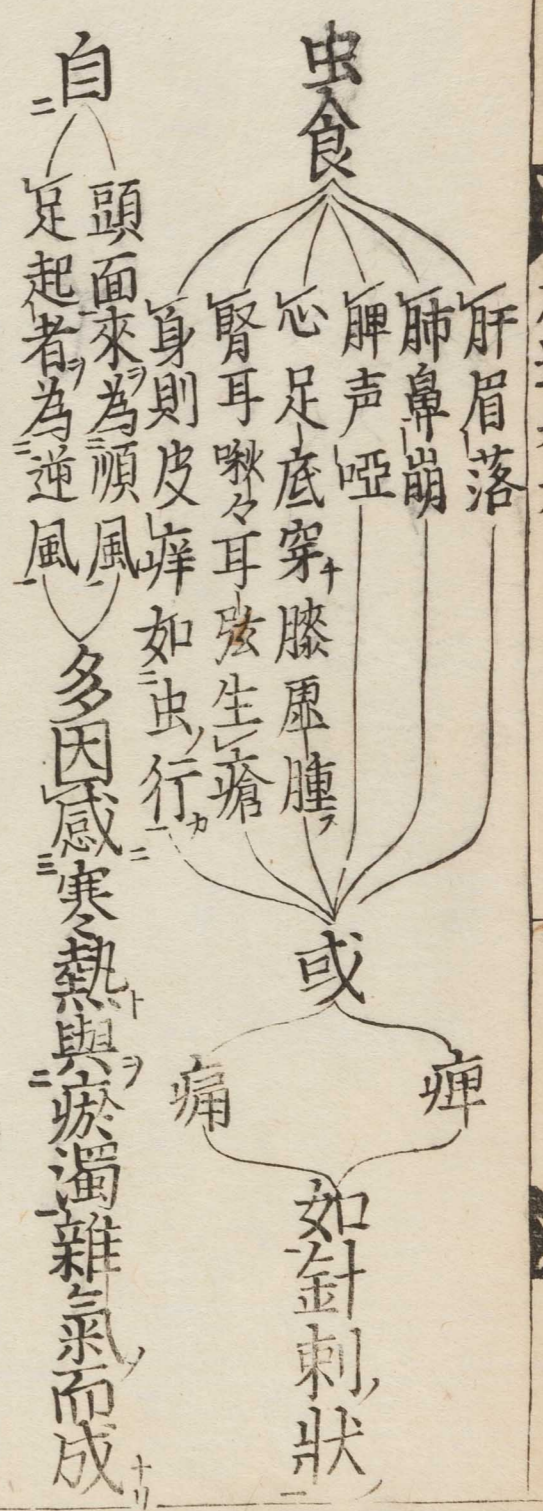 虫食
肝眉落
肺鼻崩
脾声啞
心足底穿膝虚腫
腎耳啾々耳弦生瘡
身則皮痒如虫行
或
痺
痛
如針刺狀
自
頭面來為順風
足起者為逆風
多因感寒熱與瘀濁雜氣而成